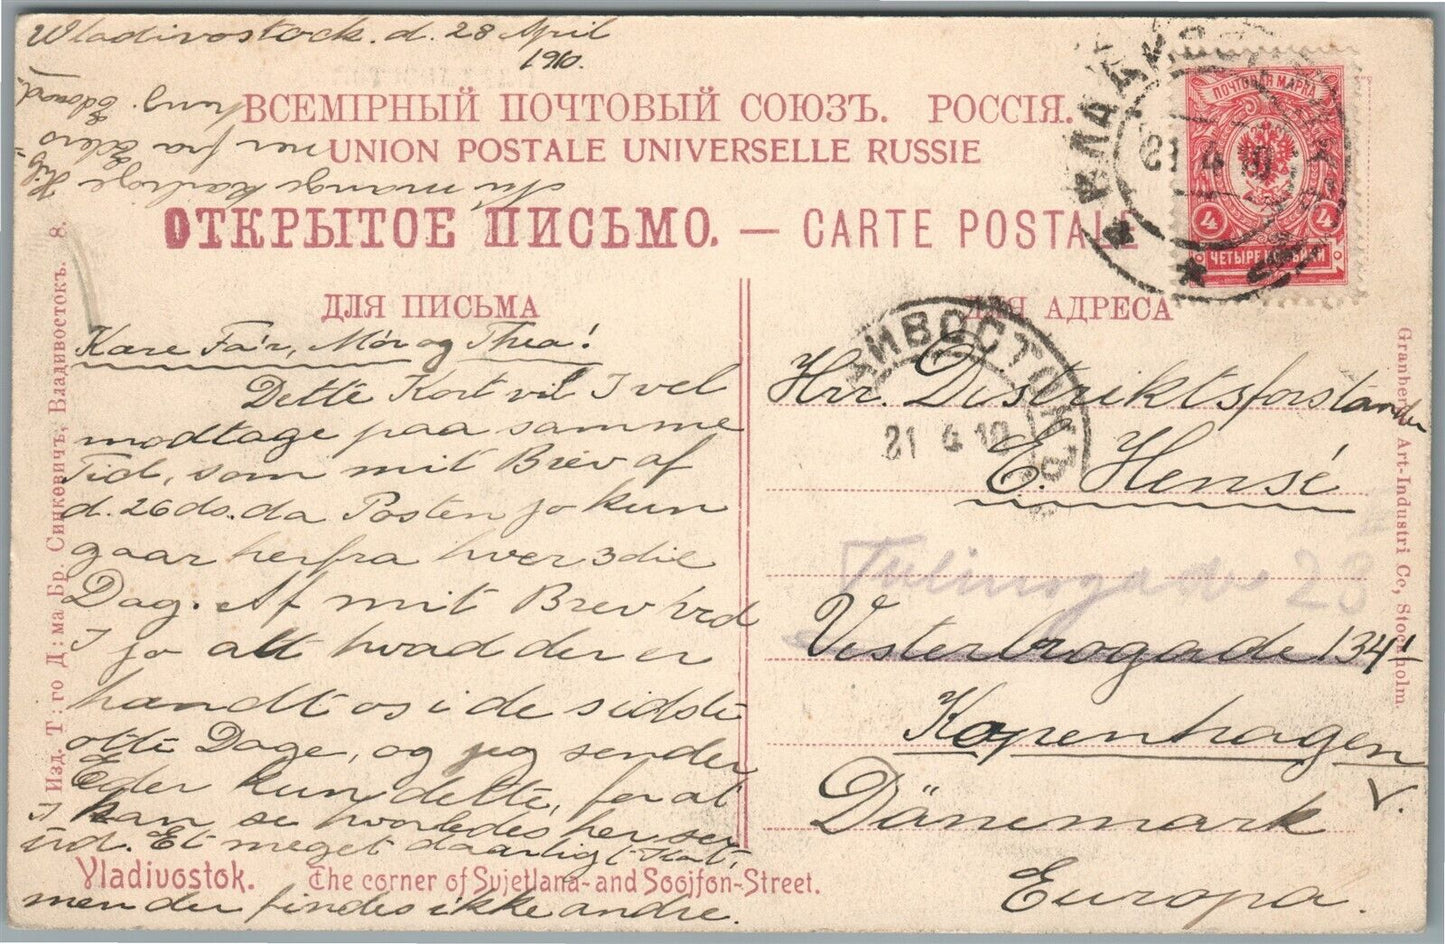 Wladivostock. d. 28 April
1910.
ВСЕМІРНЫЙ ПОЧТОВЫЙ СОЮЗЪ. РОССІЯ.
UNION POSTALE UNIVERSELLE RUSSIE
ОТКРЫТОЕ ПИСЬМО. — CARTE POSTALE
ПОЧТОВАЯ МАРКА
4 4
ЧЕТЫРЕ
21 4 10
ДЛЯ ПИСЬМА
ДЛЯ АДРЕСА
Kære Fa'r, Mor og Thea!
Dette Kort vil I vel
modtage paa samme
Tid, som mit Brev af
d. 26 ds. da Posten jo kun
gaar herfra hver 3die
Dag. Af mit Brev ved
I jo alt hvad der er
hændt os i de sidste
otte Dage, og jeg sender
Eder kun dette, for at
I kan se hvorledes her ser
ud. Et meget daarligt Kort,
men der findes ikke andre.
Nu mange kærlige Hil-
ner fra Eders
hung. Edvard.
21 4 10
Hrr. Distriktsforstander
E. Hensé
28
Vesterbrogade 134 1
Kopenhagen V.
Dänemark
Europa.
Vladivostok. The corner of Svjetlana- and Soojfon-Street.
Изд. Т:го Д:ма Бр. Синкевичъ, Владивостокъ. 8.
Granbergs Art-Industri Co, Stockholm.